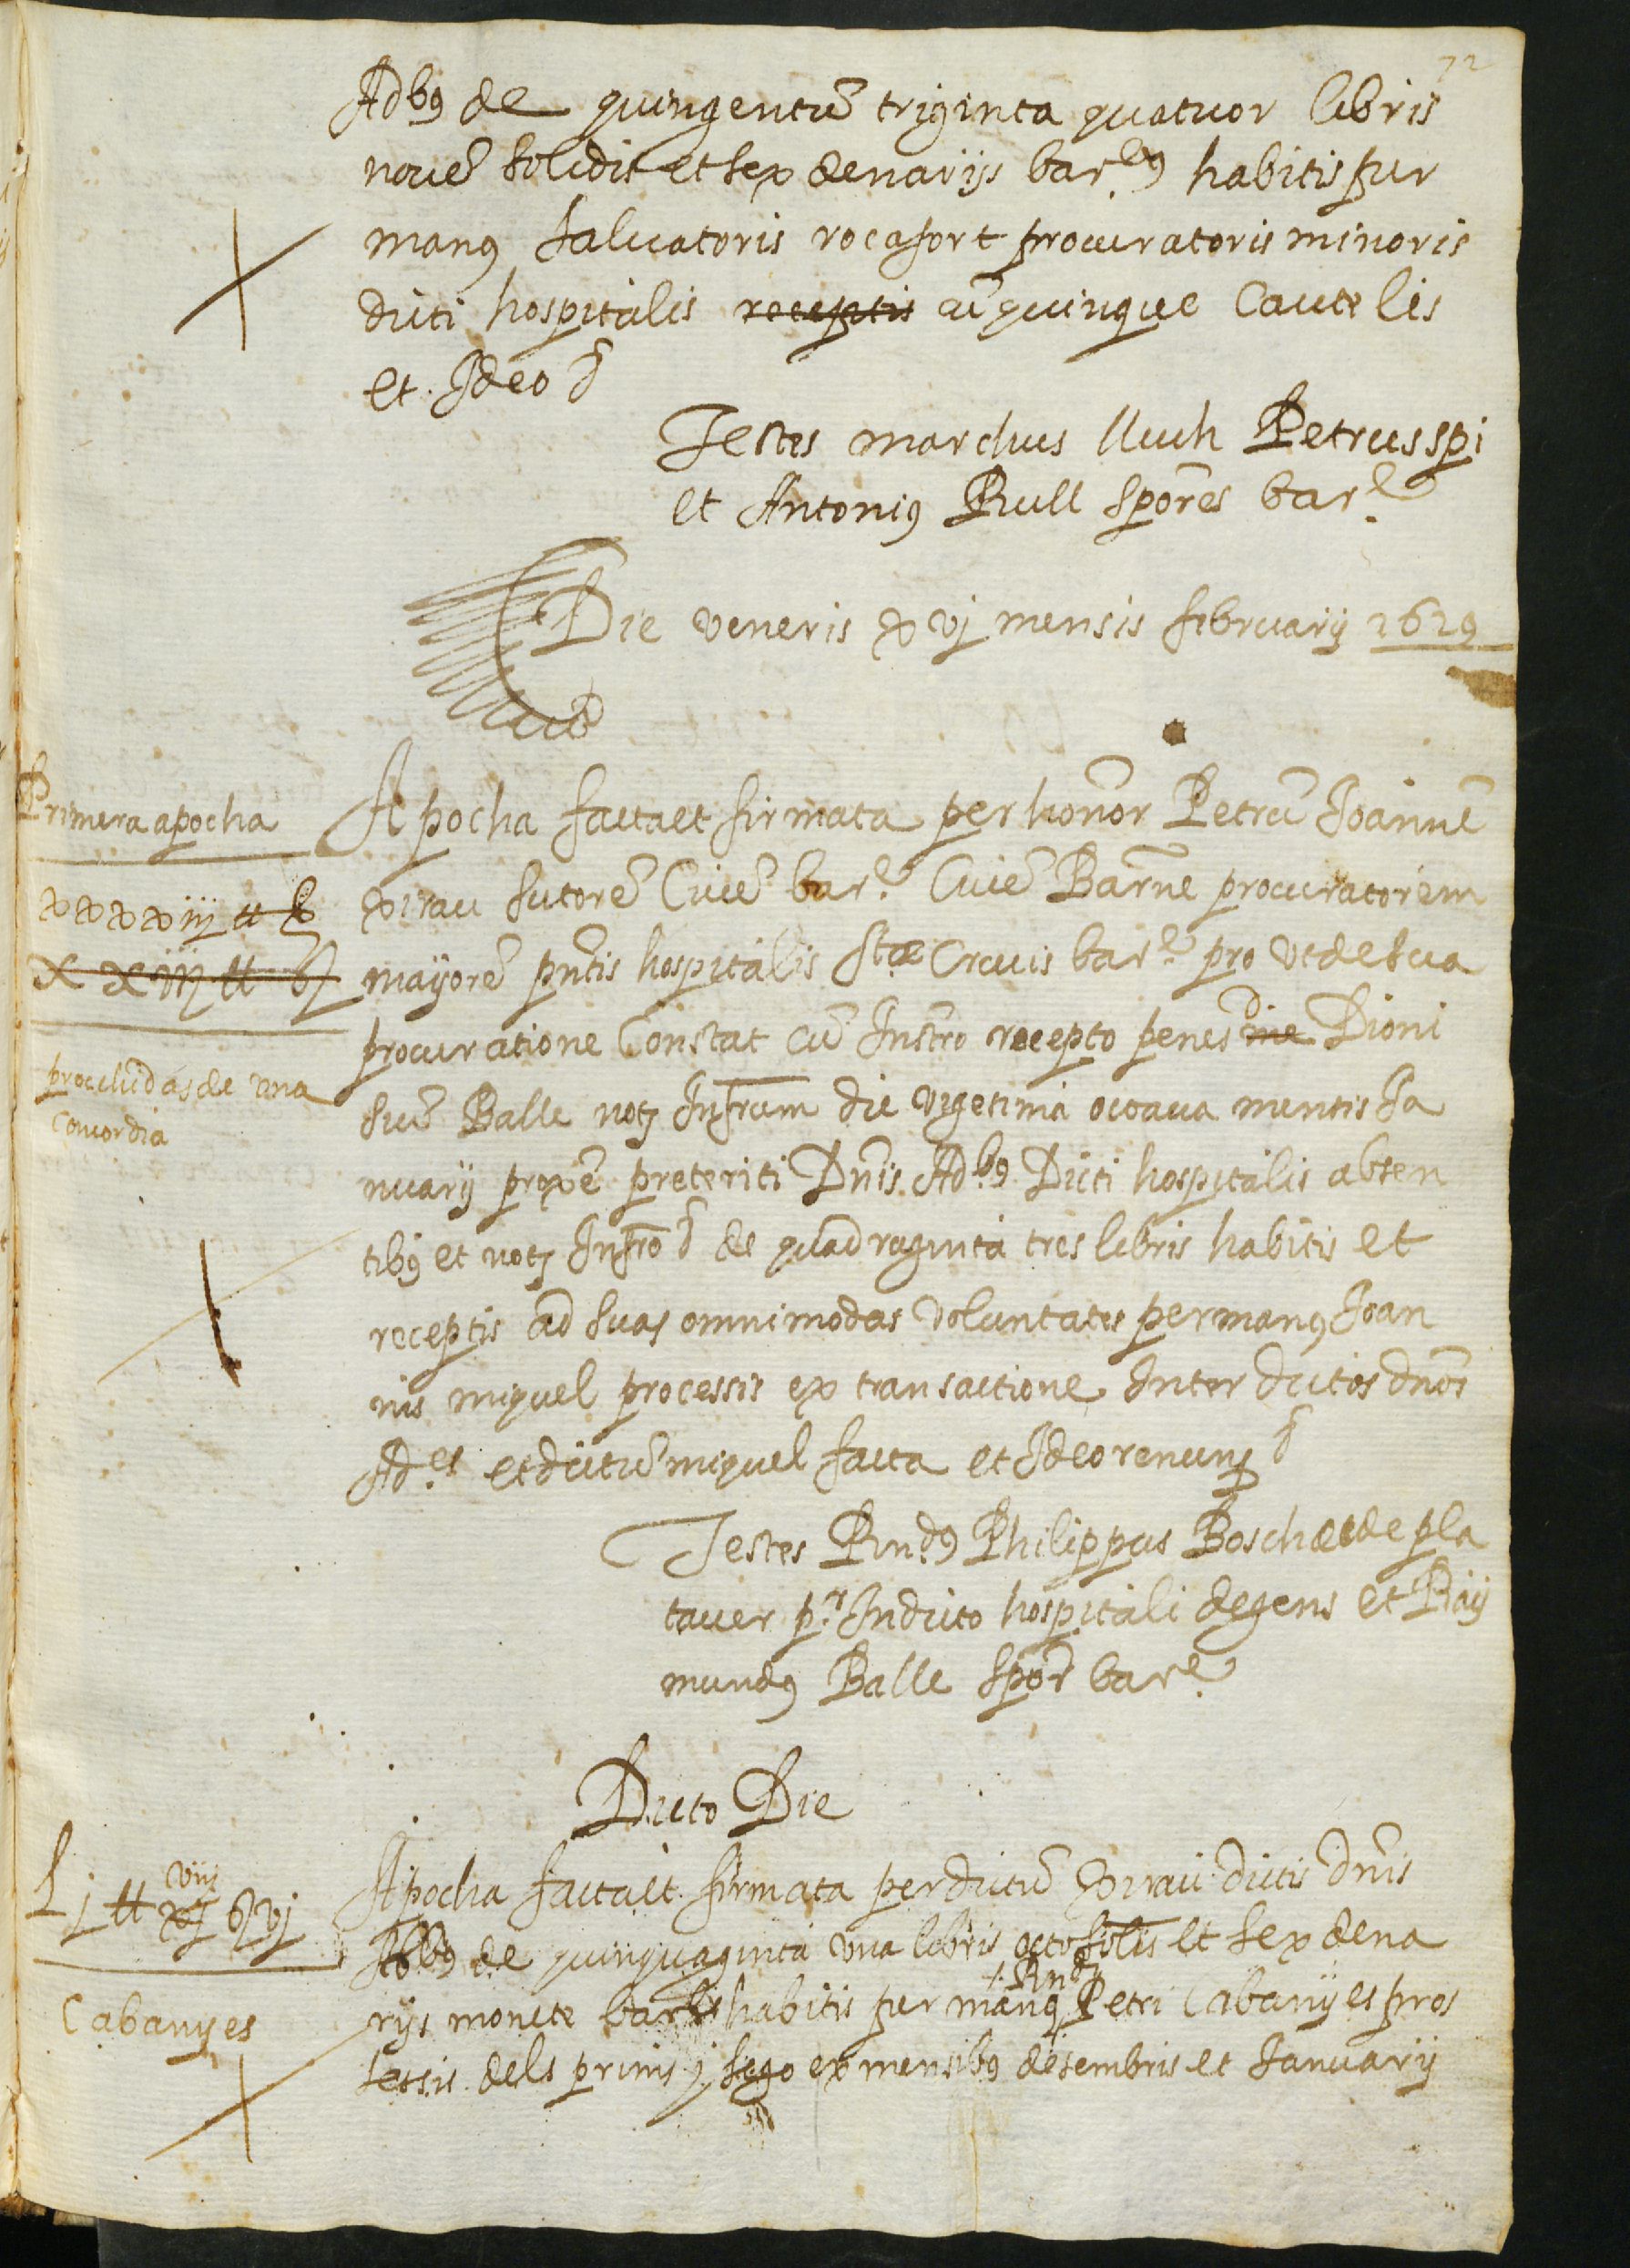 72
Adbꝰ de quingentũ triginta quatuor libris
nouẽ solidis et sex denarijs bar.ᵉꝰ habitis per
manꝰ saluatoris rocafort procuratoris minoris
dicti hospitalis receptis cũ quinque cautelis
et Ideo
Testes marchus lluch Petrus spi
et Antoniꝰ Rull spores bar.ᵉ
Die veneris xvj mensis februarij 1629
Primera apocha
Apocha facta et firmata per honor Petrũ Joannẽ
xxxxiij ll s
xirau sutorẽ Ciuẽ bar.ᵉ Ciuẽ Barne procuratorem
x xiij ll
mayorẽ pntis hospitalis Stæ Crucis bar.ᵉ pro vt de sua
procuratione Constat cũ Instro recepto penes me Dioni
procehidas de vna
concordia
siũ Balle notȝ Infrum die vigesima octaua mensis Ja
nuarij proxẽ preteriti Dnis Ad.bꝰ Dicti hospitalis absen
tibꝰ et notȝ Infro de quadraginta tres libris habitis et
receptis ad suas omnimodas voluntates per manꝰ Joan
nis miquel processis ex transactione Inter dictos dnos
Ad.es et dictũ miquel facta et Ideo renunȝ
Testes Rnd.ꝰ Philippus Bosch et de pla
tauer pr. In dicto hospitali degens et Raij
mundꝰ Balle spor bar.ᵉ
Dicto Die
Lj ll viij xj s vj
Apocha facta et firmata per dictũ xirau dictis dnis
Adbꝰ de quinquaginta vna libris octo solis et sex dena
+ Rndi
Cabanyes
rijs monete bar habitis per manꝰ Petri Cabanyes pros
sessis dels prims j sego ex mensibꝰ desembris et Januarij